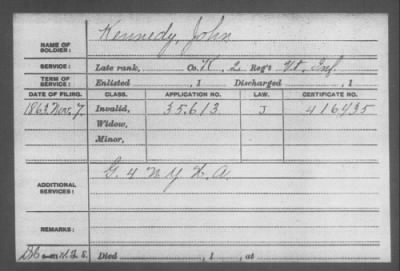 NAME OF SOLDIER: Kennedy, John
SERVICE: Late rank, Co. K, 2 Reg't Vt. Inf.
TERM OF SERVICE: Enlisted , 1 Discharged , 1
DATE OF FILING. CLASS. APPLICATION NO. LAW. CERTIFICATE NO.
1863 Nov. 7. Invalid, 35.613 J 416435
Widow,
Minor,
ADDITIONAL SERVICES: G. 4 N Y H. A.
REMARKS:
Died , 1 , at